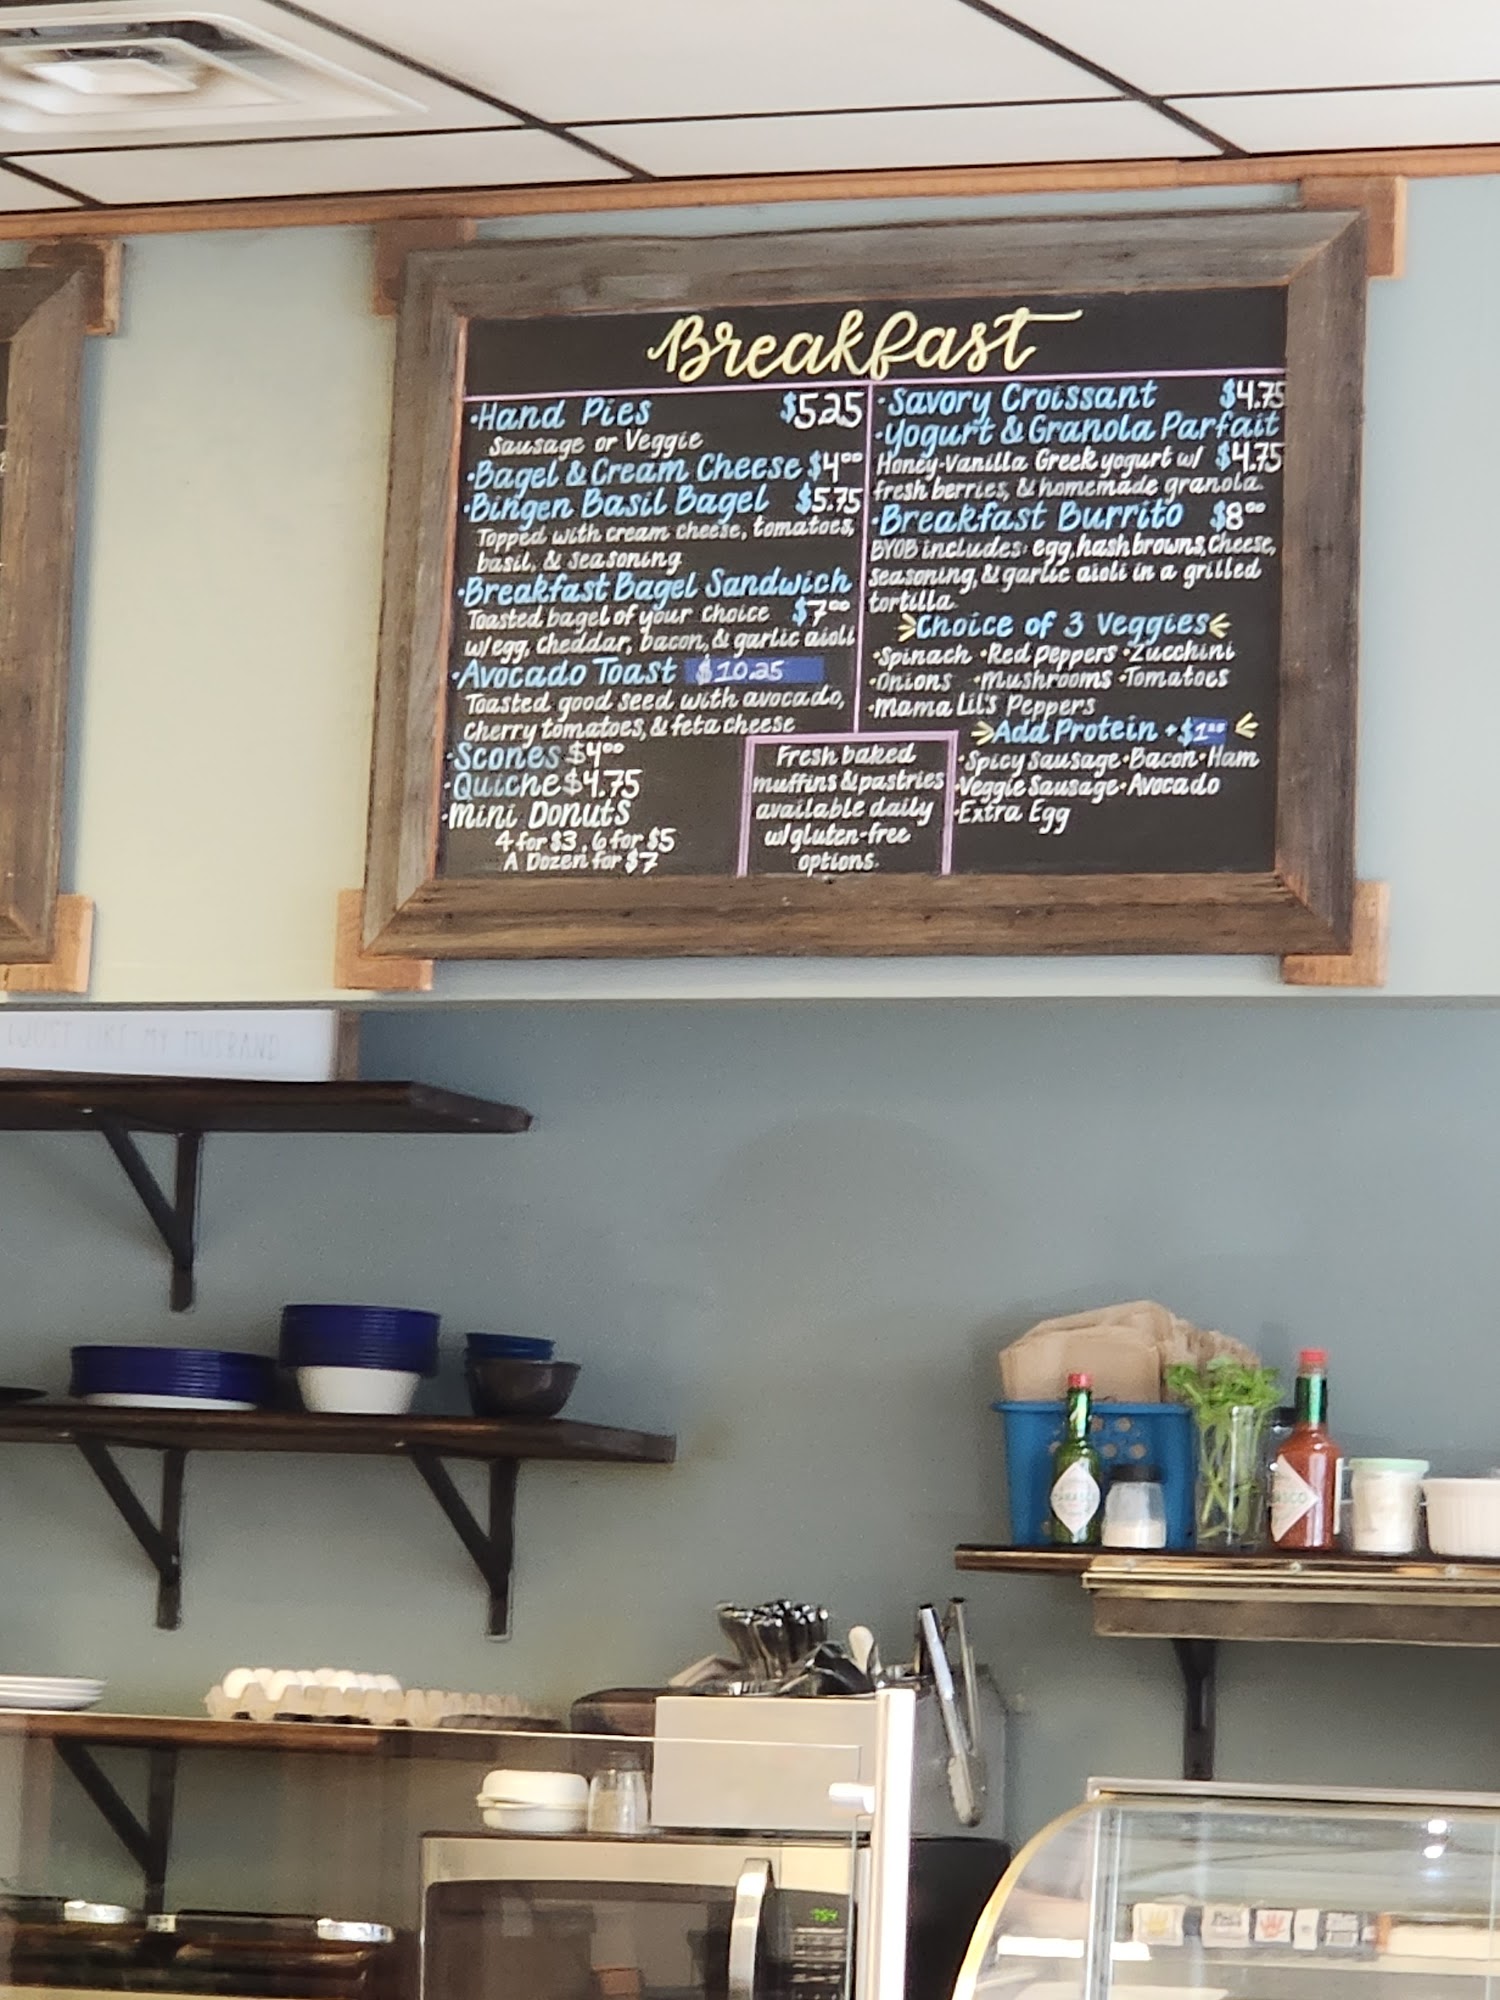 Breakfast
·Hand Pies $5.25
Sausage or Veggie
·Bagel & Cream Cheese $4⁰⁰
·Bingen Basil Bagel $5.75
Topped with cream cheese, tomatoes,
basil, & seasoning
·Breakfast Bagel Sandwich
Toasted bagel of your choice $7⁰⁰
w/egg, cheddar, bacon, & garlic aioli
·Avocado Toast $10.25
Toasted good seed with avocado,
Cherry tomatoes, & feta cheese
·Scones $4⁰⁰
·Quiche $4.75
·Mini Donuts
4 for $3, 6 for $5
A Dozen for $7
Fresh baked
muffins & pastries
available daily
w/gluten-free
options.
·Savory Croissant $4.75
·Yogurt & Granola Parfait
Honey-Vanilla Greek yogurt w/ $4.75
fresh berries, & homemade granola.
·Breakfast Burrito $8⁰⁰
BYOB includes: egg, hashbrowns, cheese,
seasoning, & garlic aioli in a grilled
tortilla.
Choice of 3 Veggies
·Spinach ·Red peppers ·Zucchini
·Onions ·mushrooms ·Tomatoes
·Mama Lil's Peppers
Add Protein +$1⁰⁰
·Spicy Sausage ·Bacon ·Ham
·Veggie Sausage ·Avocado
·Extra Egg
JUST LIKE MY HUSBAND
TABASCO